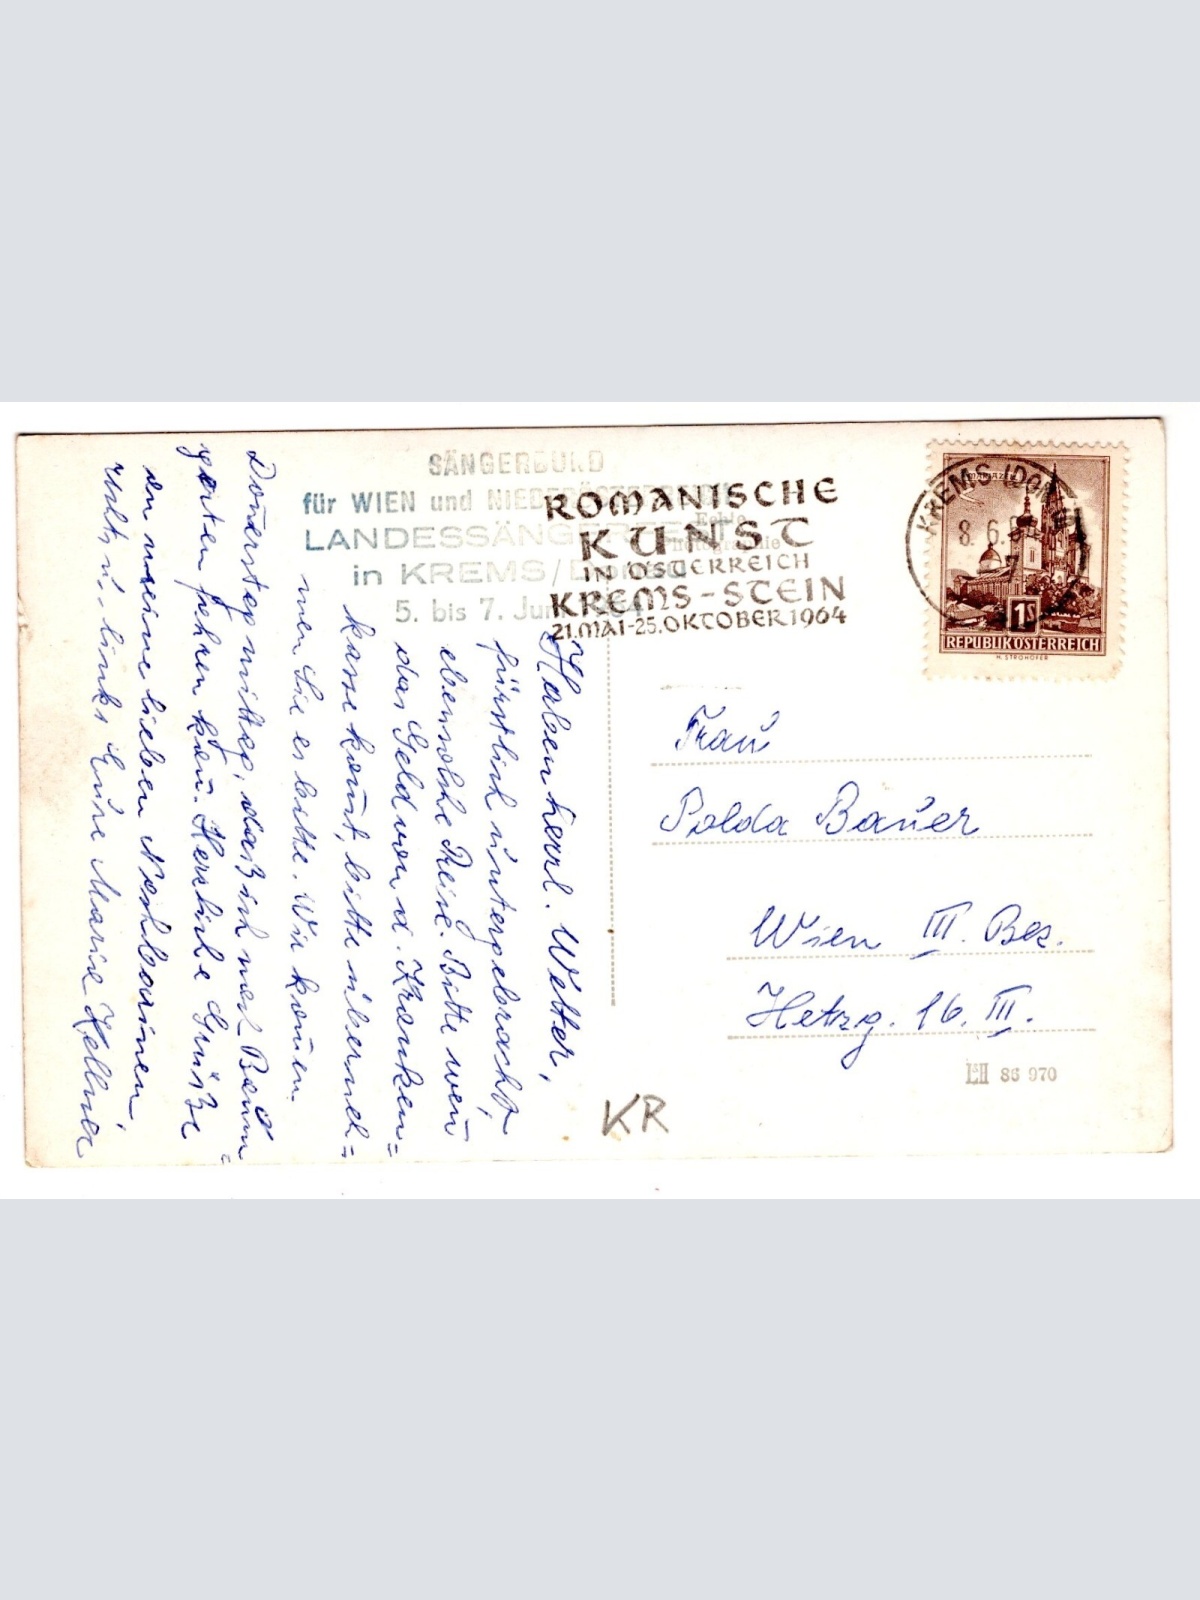 SÄNGERBUND
für WIEN und NIEDERÖSTERREICH
LANDESSÄNGERFEST
in KREMS/Donau
5. bis 7. Juni 1964
Echte
Photographie
ROMANISCHE
KUNST
IN OSTERREICH
KREMS-STEIN
21.MAI-25.OKTOBER 1964
KREMS (DONAU
8.6.64
7
1S
REPUBLIK ÖSTERREICH
H. STROHOFER
Haben herrl. Wetter,
fürstlich untergebracht,
ebensolche Reise. Bitte weñ
das Geld von d. Kranken=
kasse komt, bitte überneh=
men Sie es bitte. Wir koñen
Doñerstag mittag, daß ich nach Baum=
garten fahren kañ. Herzliche Grüße
an meine lieben Nachbarinnen,
rechts u. links Eure Marie Kellner
Frau
Polda Bauer
Wien III. Bez.
Hetzg. 16. III.
LH 86 970
KR